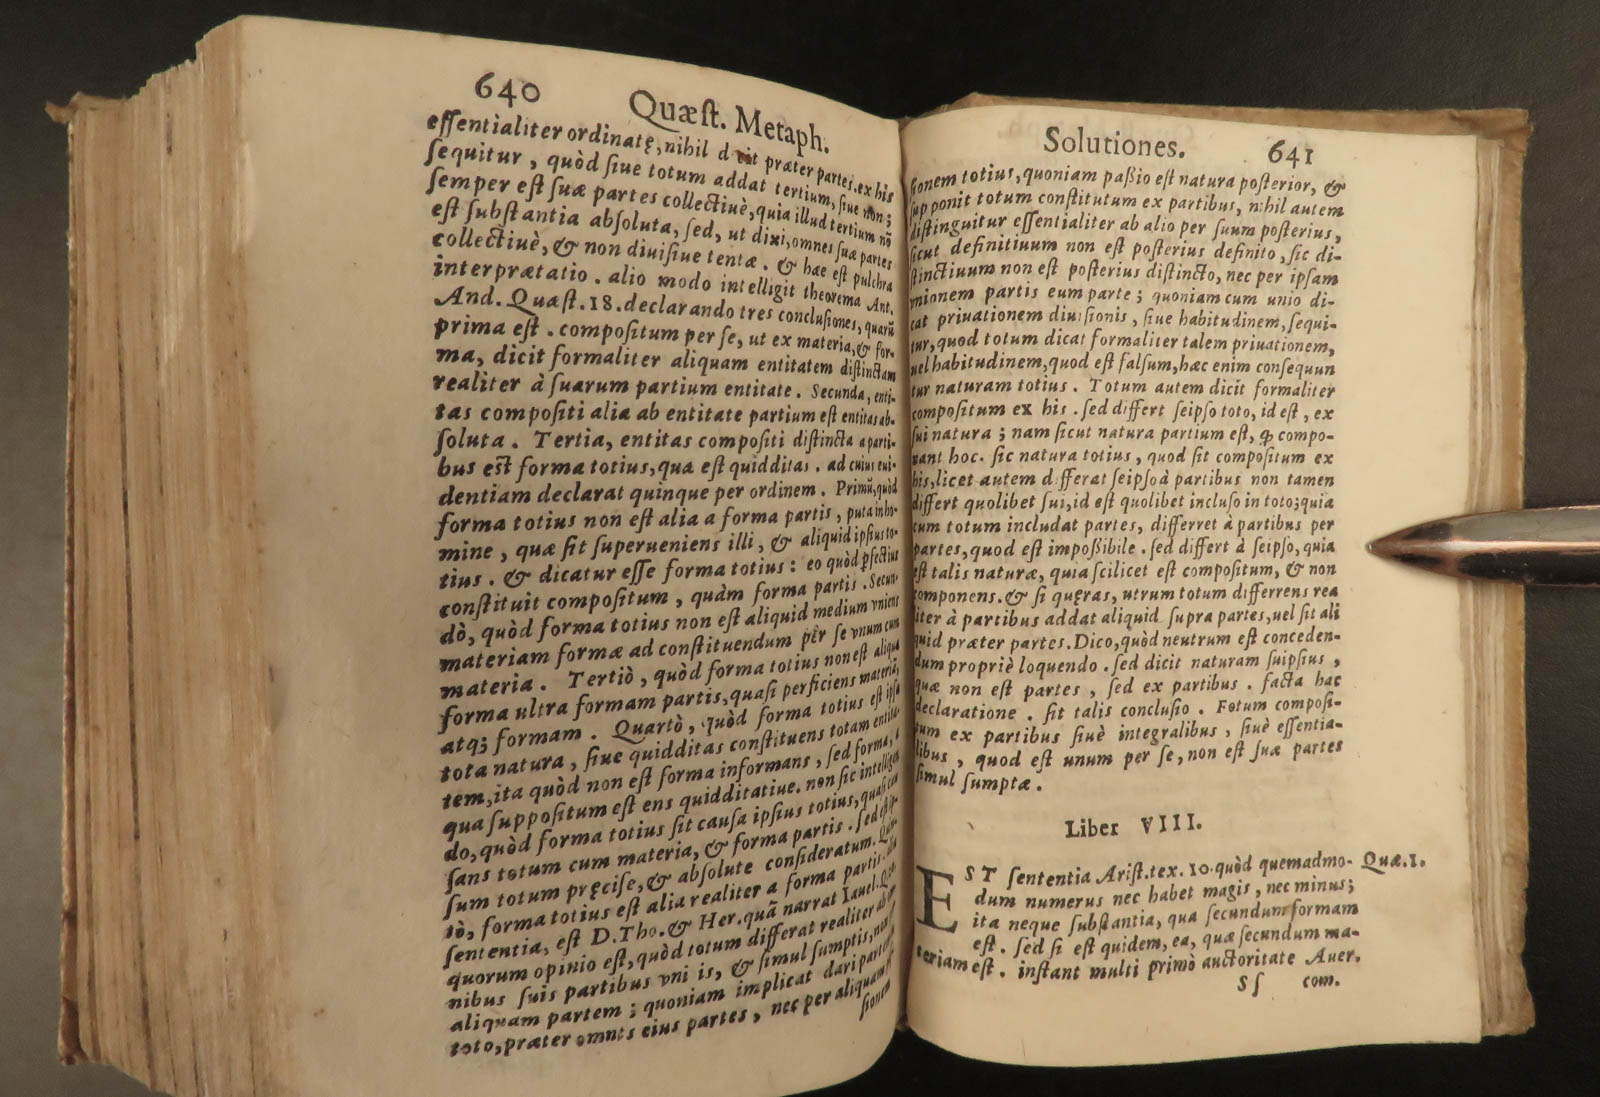 640
Quæſt. Metaph.
eſſentialiter ordinatę, nihil dicit præter partes. ex his
ſequitur, quòd ſiue totum addat tertium, ſiue non;
ſemper eſt ſuæ partes collectiuè, quia illud tertium nõ
eſt ſubſtantia abſoluta, ſed, ut dixi, omnes ſuæ partes
collectiuè, & non diuiſiue tentæ. & hæc eſt pulchra
interprætatio. alio modo intelligit theorema Ant.
And. Quæſt. 18. declarando tres concluſiones, quarũ
prima eſt. compoſitum per ſe, ut ex materia, & for-
ma, dicit formaliter aliquam entitatem diſtinctam
realiter à ſuarum partium entitate. Secunda, enti-
tas compoſiti alia ab entitate partium eſt entitas ab-
ſoluta. Tertia, entitas compoſiti diſtincta a parti-
bus eſt forma totius, quæ eſt quidditas. ad cuius eui-
dentiam declarat quinque per ordinem. Primũ, quòd
forma totius non eſt alia a forma partis, puta in ho-
mine, quæ ſit ſuperueniens illi, & aliquid ipſius to-
tius. & dicatur eſſe forma totius: eo quòd perfectius
conſtituit compoſitum, quàm forma partis. Secun-
dò, quòd forma totius non eſt aliquid medium vniens
materiam formæ ad conſtituendum per ſe vnum cum
materia. Tertiò, quòd forma totius non eſt aliqua
forma ultra formam partis, quaſi perficiens materiã,
atq; formam. Quartò, quòd forma totius eſt ipſa
tota natura, ſiue quidditas conſtituens totam entita-
tem, ita quòd non eſt forma informans, ſed forma,
qua ſuppoſitum eſt ens quidditatiue. non ſic intelligen
do, quòd forma totius ſit cauſa ipſius totius, quaſi cau
ſans totum cum materia, & forma partis. ſed eſt ip-
ſum totum pręciſe, & abſolute conſideratum. Quin-
tò, forma totius eſt alia realiter a forma partis.
ſententia, eſt D. Tho. & Her. quã narrat Iauel.
quorum opinio eſt, quòd totum differat realiter ab om
nibus ſuis partibus vnitis, & ſimul ſumptis,
aliquam partem; quoniam implicat dari
toto, præter omnes eius partes, nec per aliquam
ſionem
Solutiones.
641
ſionem totius, quoniam paßio eſt natura poſterior, &
ſupponit totum conſtitutum ex partibus, nihil autem
diſtinguitur eſſentialiter ab alio per ſuum poſterius,
ſicut definitiuum non eſt poſterius definito, ſic di-
ſtinctiuum non eſt poſterius diſtincto, nec per ipſam
vnionem partis eum parte; quoniam cum unio di-
cat priuationem diuiſionis, ſiue habitudinem, ſequi-
tur, quod totum dicat formaliter talem priuationem,
uel habitudinem, quod eſt falſum, hæc enim conſequun
tur naturam totius. Totum autem dicit formaliter
compoſitum ex his. ſed differt ſeipſo toto, id eſt, ex
ſui natura; nam ſicut natura partium eſt, ꝙ compo-
nant hoc. ſic natura totius, quod ſit compoſitum ex
his, licet autem differat ſeipſo à partibus non tamen
differt quolibet ſui, id eſt quolibet incluſo in toto; quia
cum totum includat partes, differret à partibus per
partes, quod eſt impoßibile. ſed differt à ſeipſo, quia
eſt talis naturæ, quia ſcilicet eſt compoſitum, & non
componens. & ſi quęras, utrum totum differens rea
liter à partibus addat aliquid ſupra partes, uel ſit ali
quid præter partes. Dico, quòd neutrum eſt conceden-
dum propriè loquendo. ſed dicit naturam ſuipſius,
quæ non eſt partes, ſed ex partibus. facta hac
declaratione. ſit talis concluſio. Fotum compoſi-
tum ex partibus ſiuè integralibus, ſiuè eſſentia-
libus, quod eſt unum per ſe, non eſt ſuæ partes
ſimul ſumptæ.
Liber VIII.
EST ſententia Ariſt. tex. 10. quòd quemadmo- Quæ. 1.
dum numerus nec habet magis, nec minus;
ita neque ſubſtantia, qua ſecundum formam
eſt. ſed ſi eſt quidem, ea, quæ ſecundum ma-
teriam eſt. inſtant multi primò auctoritate Auer.
Sſ com.